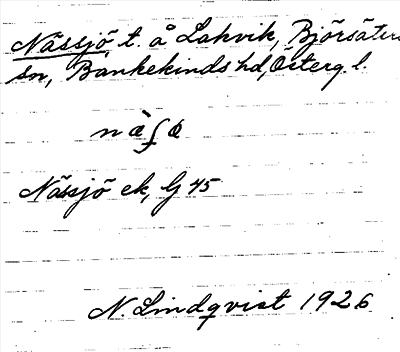 Nässjö t. å Lakvik, Björsäters
sn, Bankekinds hd, Österg. l.
Nässjö ek, G 45
N. Lindqvist 1926